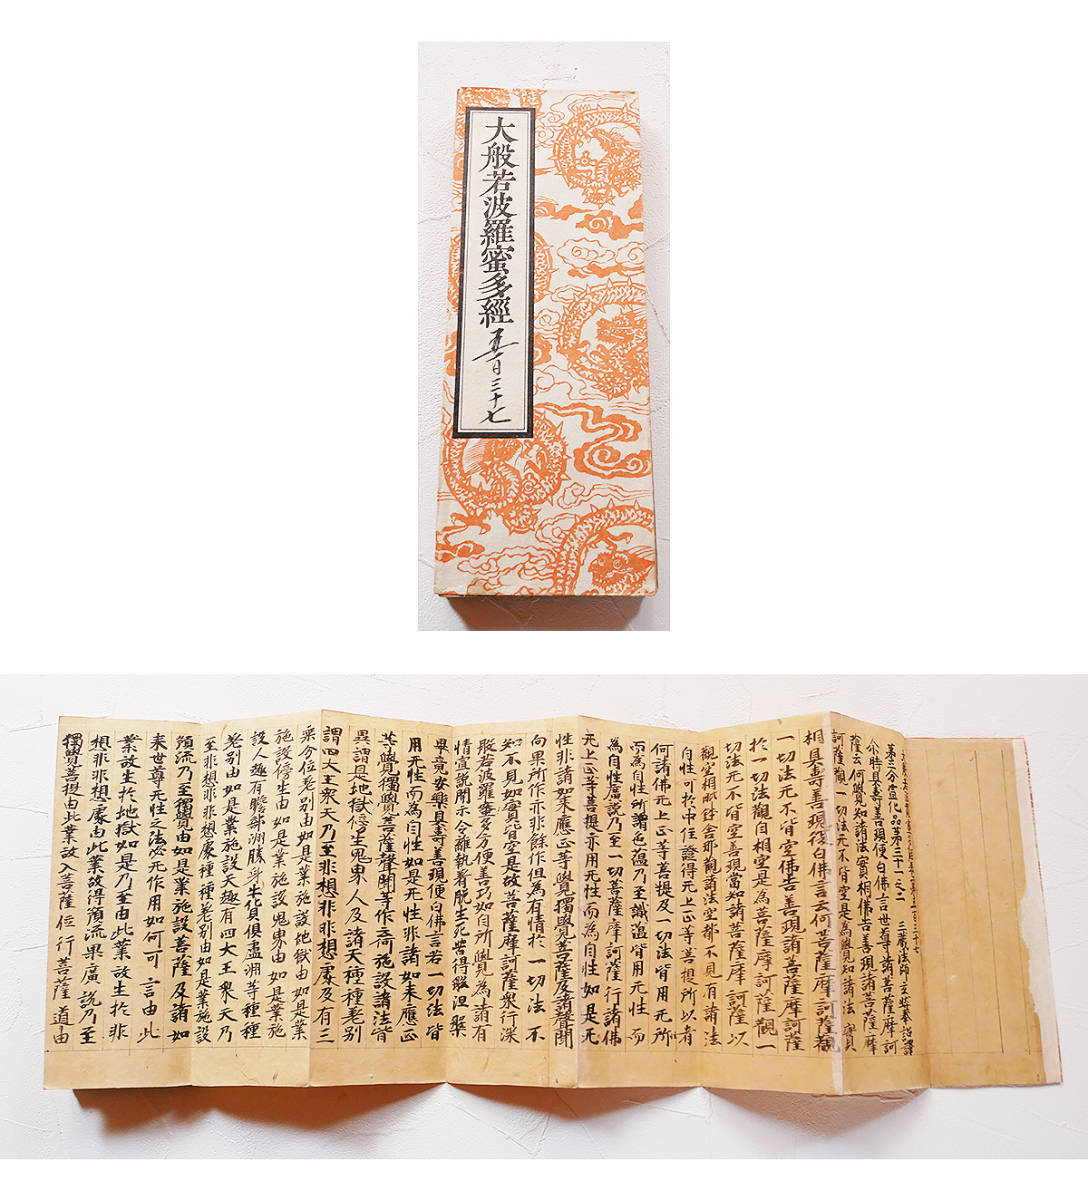 大般若波羅蜜多經 五百三十七
第三分宣化品第三十一之二 三藏法師玄奘奉詔譯
尒時具壽善現便白佛言世尊諸菩薩摩訶
薩云何覺知諸法實相佛告善現諸菩薩摩
訶薩觀一切法无不皆空是為覺知諸法實
相具壽善現復白佛言云何菩薩摩訶薩觀
一切法无不皆空佛告善現諸菩薩摩訶薩
於一切法觀自相空是為菩薩摩訶薩觀一
切法无不皆空善現當知諸菩薩摩訶薩以
自性可於中住證得无上正等菩提所以者
何諸佛无上正等菩提及一切法皆用无所
為自性廣說乃至一切菩薩摩訶薩行諸佛
无上正等菩提亦用无性而為自性如是无
性非諸如來應正等覺獨覺菩薩及諸聲聞
向果所作亦非餘作但為有情於一切法不
知不見如實皆空是故菩薩摩訶薩衆行深
般若波羅蜜多方便善巧如自所覺為諸有
情宣說開示令離執著脫生死苦得般涅槃
畢竟安樂具壽善現便白佛言若一切法皆
用无性而為自性如是无性非諸如來應正
等覺獨覺菩薩聲聞等作云何施設諸法皆
異謂是地獄傍生鬼界人及諸天種種差別
謂四大王衆天乃至非想非非想處及有三
乘分位差別由如是業施設地獄由如是業
施設傍生由如是業施設鬼界由如是業施
設人趣有贍部洲勝身牛貨俱盧洲等種種
差別由如是業施設天趣有四大王衆天乃
至非想非非想處種種差別由如是業施設
預流乃至獨覺由如是業施設菩薩及諸如
來世尊无性之法必无作用如何可言由此
業故生於地獄如是乃至由此業故生於非
想非非想處由此業故得預流果廣說乃至
獨覺菩提由此業故入菩薩位行菩薩道由